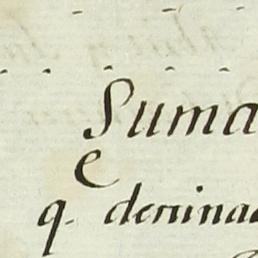 Suma
e
q. deninad